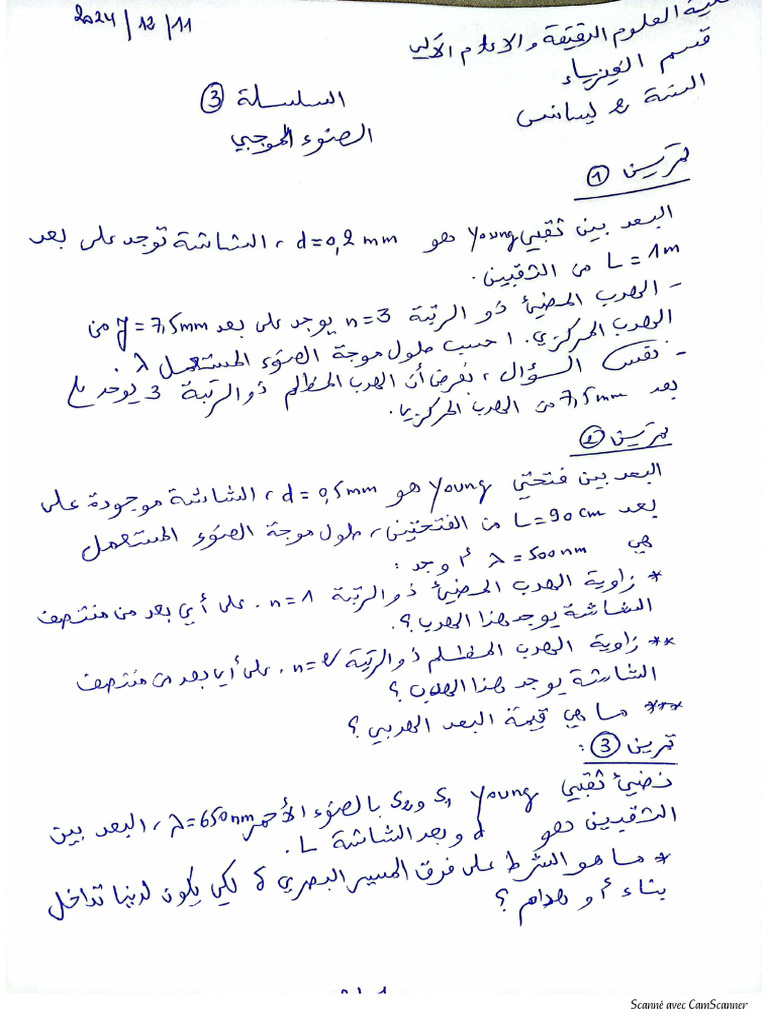 2024/12/11
كلية العلوم الدقيقة والاعلام الآلي
قسم الفيزياء
السنة 2 ليسانس
السلسلة 3
الضوء الموجي
تمرين 1
البعد بين ثقبي young هو d = 0,2 mm، الشاشة توجد على بعد
L = 1m من الثقبين.
- الهدب المضيئ ذو الرتبة n=3 يوجد على بعد y = 7,5mm من
الهدب المركزي. احسب طول موجة الضوء المستعمل λ.
- نفس السؤال، بفرض أن الهدب المظلم ذو الرتبة 3 يوجد على
بعد 7,5mm من الهدب المركزي.
تمرين 2
البعد بين فتحتي young هو d = 0,5mm، الشاشة موجودة على
بعد L = 90 cm من الفتحتين، طول موجة الضوء المستعمل
هي λ = 500nm أوجد:
* زاوية الهدب المضيئ ذو الرتبة n = 1. على أي بعد من منتصف
الشاشة يوجد هذا الهدب؟
** زاوية الهدب المظلم ذو الرتبة n=2. على أي بعد من منتصف
الشاشة يوجد هذا الهدب؟
*** ما هي قيمة البعد الهدبي؟
تمرين 3:
نضيئ ثقبي young S1 و S2 بالضوء الأحمر λ=650nm، البعد بين
الثقبين هو d وبعد الشاشة L.
* ما هو الشرط على فرق المسير البصري δ لكي يكون لدينا تداخل
بناء أو هدام؟
Scanné avec CamScanner